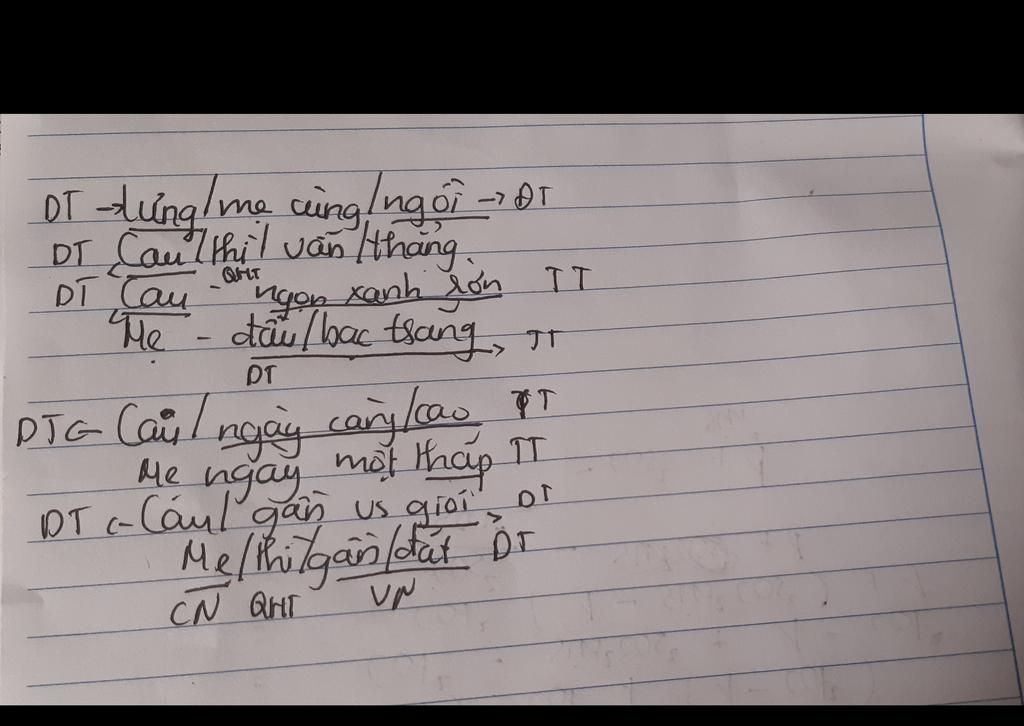 DT → Lưng/mẹ cùng/ngồi → ĐT
DT Cau/thì/vẫn/thẳng
QHT
DT Cau - ngọn xanh rờn TT
Mẹ - đầu/bạc trắng → TT
DT
DT ← Cau/ngày càng/cao TT
Mẹ ngày một thấp TT
DT ← Cau/gần vs giời → DT
Mẹ/thì/gần/đất DT
CN QHT VN